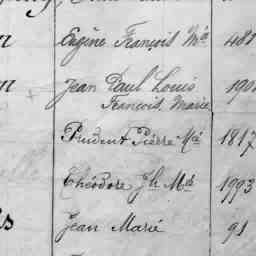 Eugène François Mie 481
Jean Paul Louis 190
François Marie
Prudent Pierre Mie 1817
Théodore Jh Mie 1993
Jean Marie 91